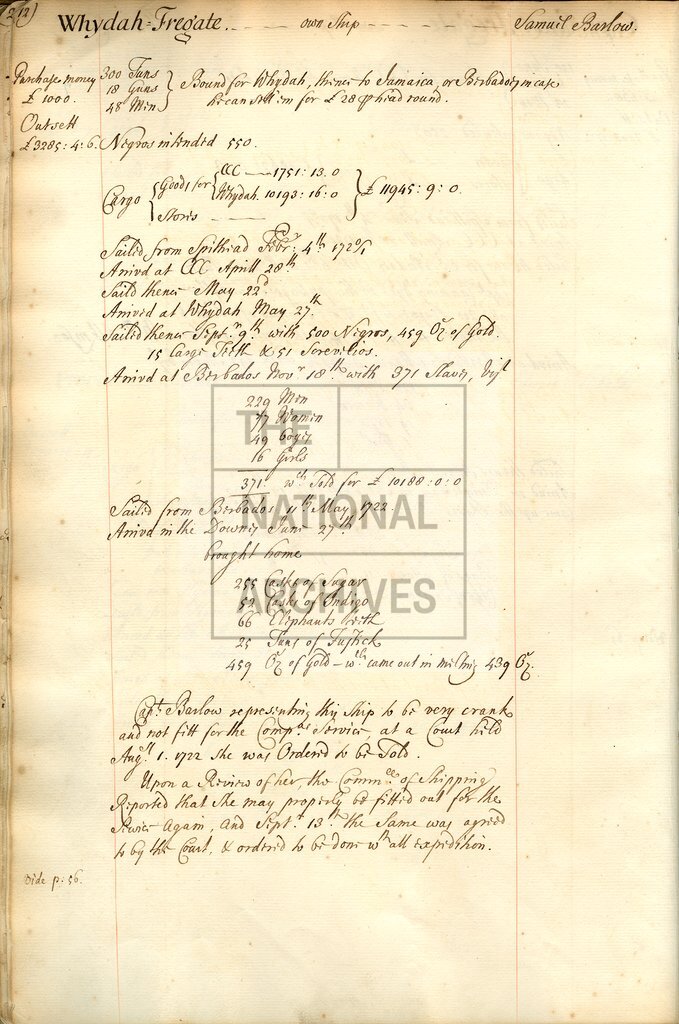 (212)
Whydah=Fregate. -- own Ship -- Samuel Barlow.
Purchase money £ 1000.
Outsett £3285:4:6.
300 Tuns
18 Guns
48 Men
Bound for Whydah, thence to Jamaica, or Berbadoes in case
he can sell em for £ 28 ⅌ head round.
Negros intended 550.
Cargo
Goods for
CCC — 1751:13:0
Whydah. 10193:16:0
Stores
£ 11945:9:0.
Sailed from Spithead Febr.ʸ 4ᵗʰ 172⁰/₁
Arrivd at CCC Aprill 28ᵗʰ
Saild thence May 22ᵈ
Arrived at Whydah May 27ᵗʰ
Sailed thence Septʳ 9ᵗʰ with 500 Negros, 459 Oz of Gold.
15 Large Teeth & 51 Screvelios.
Arrivd at Berbados Novʳ 18ᵗʰ with 371 Slaves, Vizᵗ
229 Men
77 Women
49 boyes
16 Girls
371 wᶜʰ Sold for £ 10188:0:0
Sailed from Berbados 11ᵗʰ May 1722.
Arrivd in the Downes June 27ᵗʰ
brought home
255 Casks of Sugar
52 Casks of Indigo
66 Elephants teeth
25 Tuns of Fustick
459 Oz of Gold — wᶜʰ came out in melting 439 Oz.
Capᵗ Barlow representing this Ship to be very crank
and not fitt for the Compᵃˢ Service, at a Court held
Augˢᵗ 1. 1722 she was Ordered to be Sold.
Upon a Review of her, the Commᵉᵉ of Shipping
Reported that She may properly be fitted out for the
Service Again, and Septʳ 13ᵗʰ the Same was agreed
to by the Court, & ordered to be done wᵗʰ all expedition.
Vide p: 56.
THE
NATIONAL
ARCHIVES